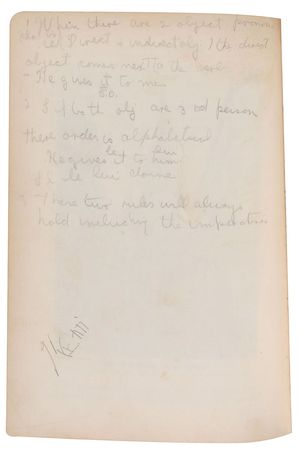 1 When there are 2 object pronouns
ie Direct & indirectly ) the direct
object comes next to the verb
- He gives it to me
2 If both obj are 3rd person
there order is alphabetical
le lui
He gives it to him
Il le lui donne
3 These two rules will always
hold including the imperative